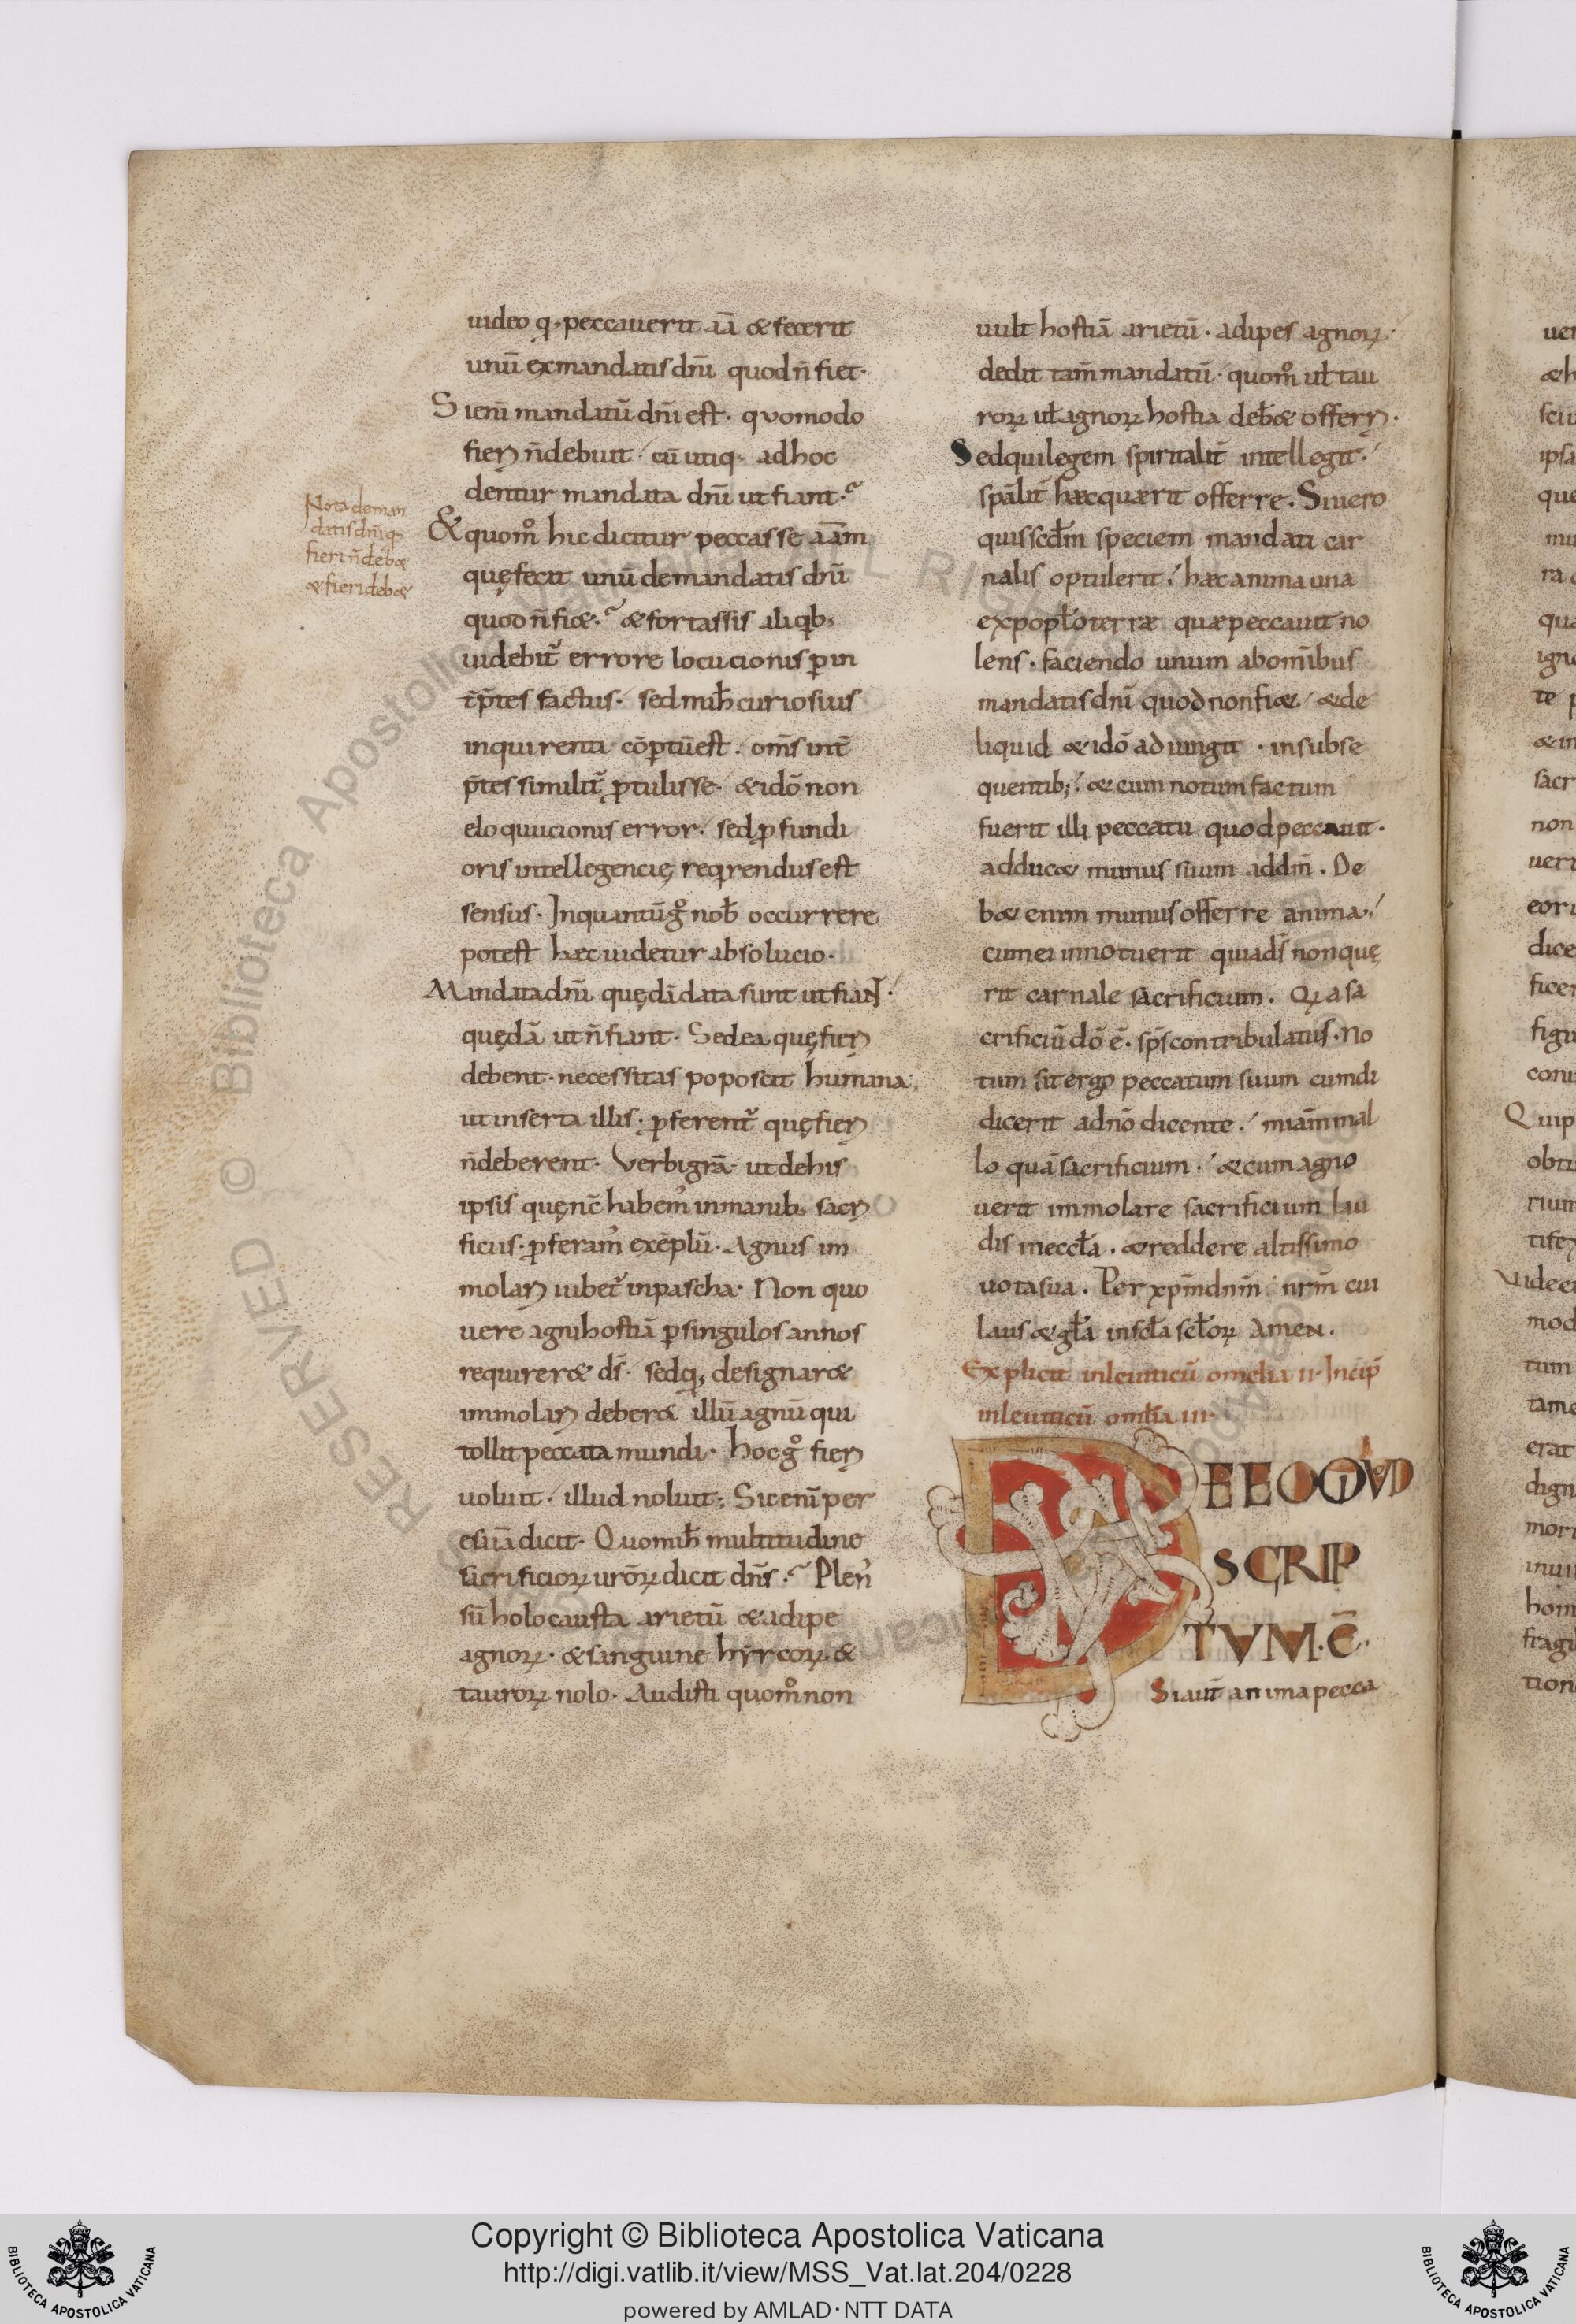 uideo q; peccauerit aīa & fecerit
unū ex mandatis dn̄i quod n̄ fiet·
Si enī mandatū dn̄i est· quomodo
fieri n̄ debuit· cū utiq; ad hoc
dentur mandata dn̄i ut fiant·
& quom̊ hic dicitur peccasse aīam
quę fecit unū de mandatis dn̄i
quod n̄ fi&· & fortassis aliqb;
uidebit̃ errore locucionis p in
t̄p̄tes factus· sed mih̄ curiosius
inquirenti cōp̄tū est· om̄s int̄
p̄tes similit̃ ptulisse· & idō non
eloquucionis error· sed pfundi
oris intellegencię reqrendus est
sensus· Inquantū g̊ nob̄ occurrere
potest hęc uidetur absolucio·
Mandata dn̄i quędā data sunt ut fiant·
quędā ut n̄ fiant· Sed ea quę fieri
debent· necessitas poposcit humana·
ut inserta illis· pferent̃ quę fieri
n̄ deberent· Verbi grā· ut de his
ipsis quę nc̄ habem' in manib; sacri
ficiis· pferam' exēplū· Agnus im
molari iubet̃ in pascha· Non quo
uere agni hostiā p singulos annos
requirer& ds̄· sed q; designar&
immolari deber& illū agnū qui
tollit peccata mundi· hoc g̊ fieri
uoluit· illud noluit; Sic enī per
esaiā dicit· Quo mih̄ multitudine
sacrificioꝝ urōꝝ dicit dn̄s· Plen'
sū holocausta arietū & adipe
agnoꝝ· & sanguine hyrcoꝝ &
tauroꝝ nolo· Audisti quom̊ non
Nota de man
datis dn̄i q;
fieri n̄ deb&
& fieri deb&
uult hostiā arietū· adipes agnoꝝ·
dedit tam̄ mandatū· quom̊ uł tau
roꝝ uł agnoꝝ hostia deb& offerri·
Sed qui legem spiritalit̃ intellegit·
spālit̃ hæc quærit offerre· Si uero
quis scdm̄ speciem mandati car
nalis optulerit· hæc anima una
ex popło terræ quæ peccauit no
lens· faciendo unum ab om̄ibus
mandatis dn̄i quod non fi&· & de
liquid & idō adiungit· in subse
quentib;· & cum notum factum
fuerit illi peccatū quod peccauit·
adduc& munus suum ad dn̄m· De
b& enim munus offerre anima·
cum ei innotuerit quia ds̄ non quę
rit carnale sacrificium· Qꝛ a sa
crificiū dō ē· sps̄ contribulatus· No
tum sit ergo peccatum suum cum di
dicerit a dn̄o dicente· miām mal
lo quā sacrificium· & cum agno
uerit immolare sacrificium lau
dis in eccła· & reddere altissimo
uota sua· Per xp̄m dn̄m nr̄m cui
laus & gła in scła scłoꝝ amen·
Explicit in leuiticū omelia ii· Incip̄
in leuiticū omłia iii·
DE EO QVOD
SCRIP
TVM· Ē·
Si aut̄ anima pecca
Copyright © Biblioteca Apostolica Vaticana
http://digi.vatlib.it/view/MSS_Vat.lat.204/0228
powered by AMLAD·NTT DATA
BIBLIOTECA APOSTOLICA VATICANA
BIBLIOTECA APOSTOLICA VATICANA